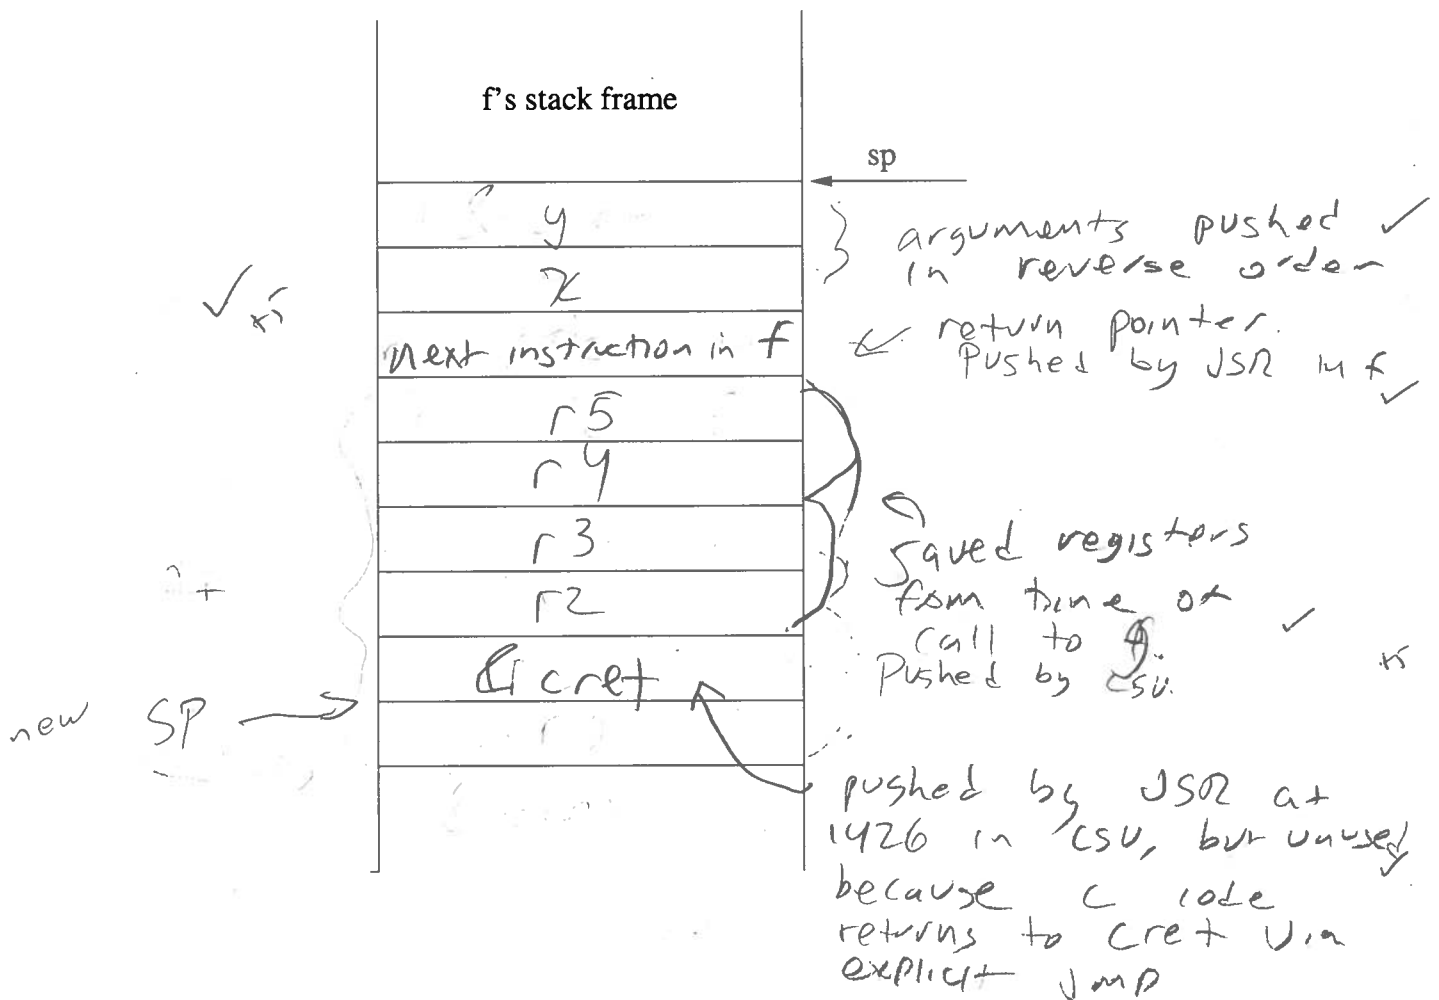 f's stack frame
sp
y
x
next instruction in f
r5
r4
r3
r2
& cret
new SP
arguments pushed
in reverse order
return pointer.
Pushed by JSR in f
Saved registers
from time of
call to
Pushed by csv.
pushed by JSR at
1426 in CSV, but unused
because C code
returns to cret via
explicit jmp